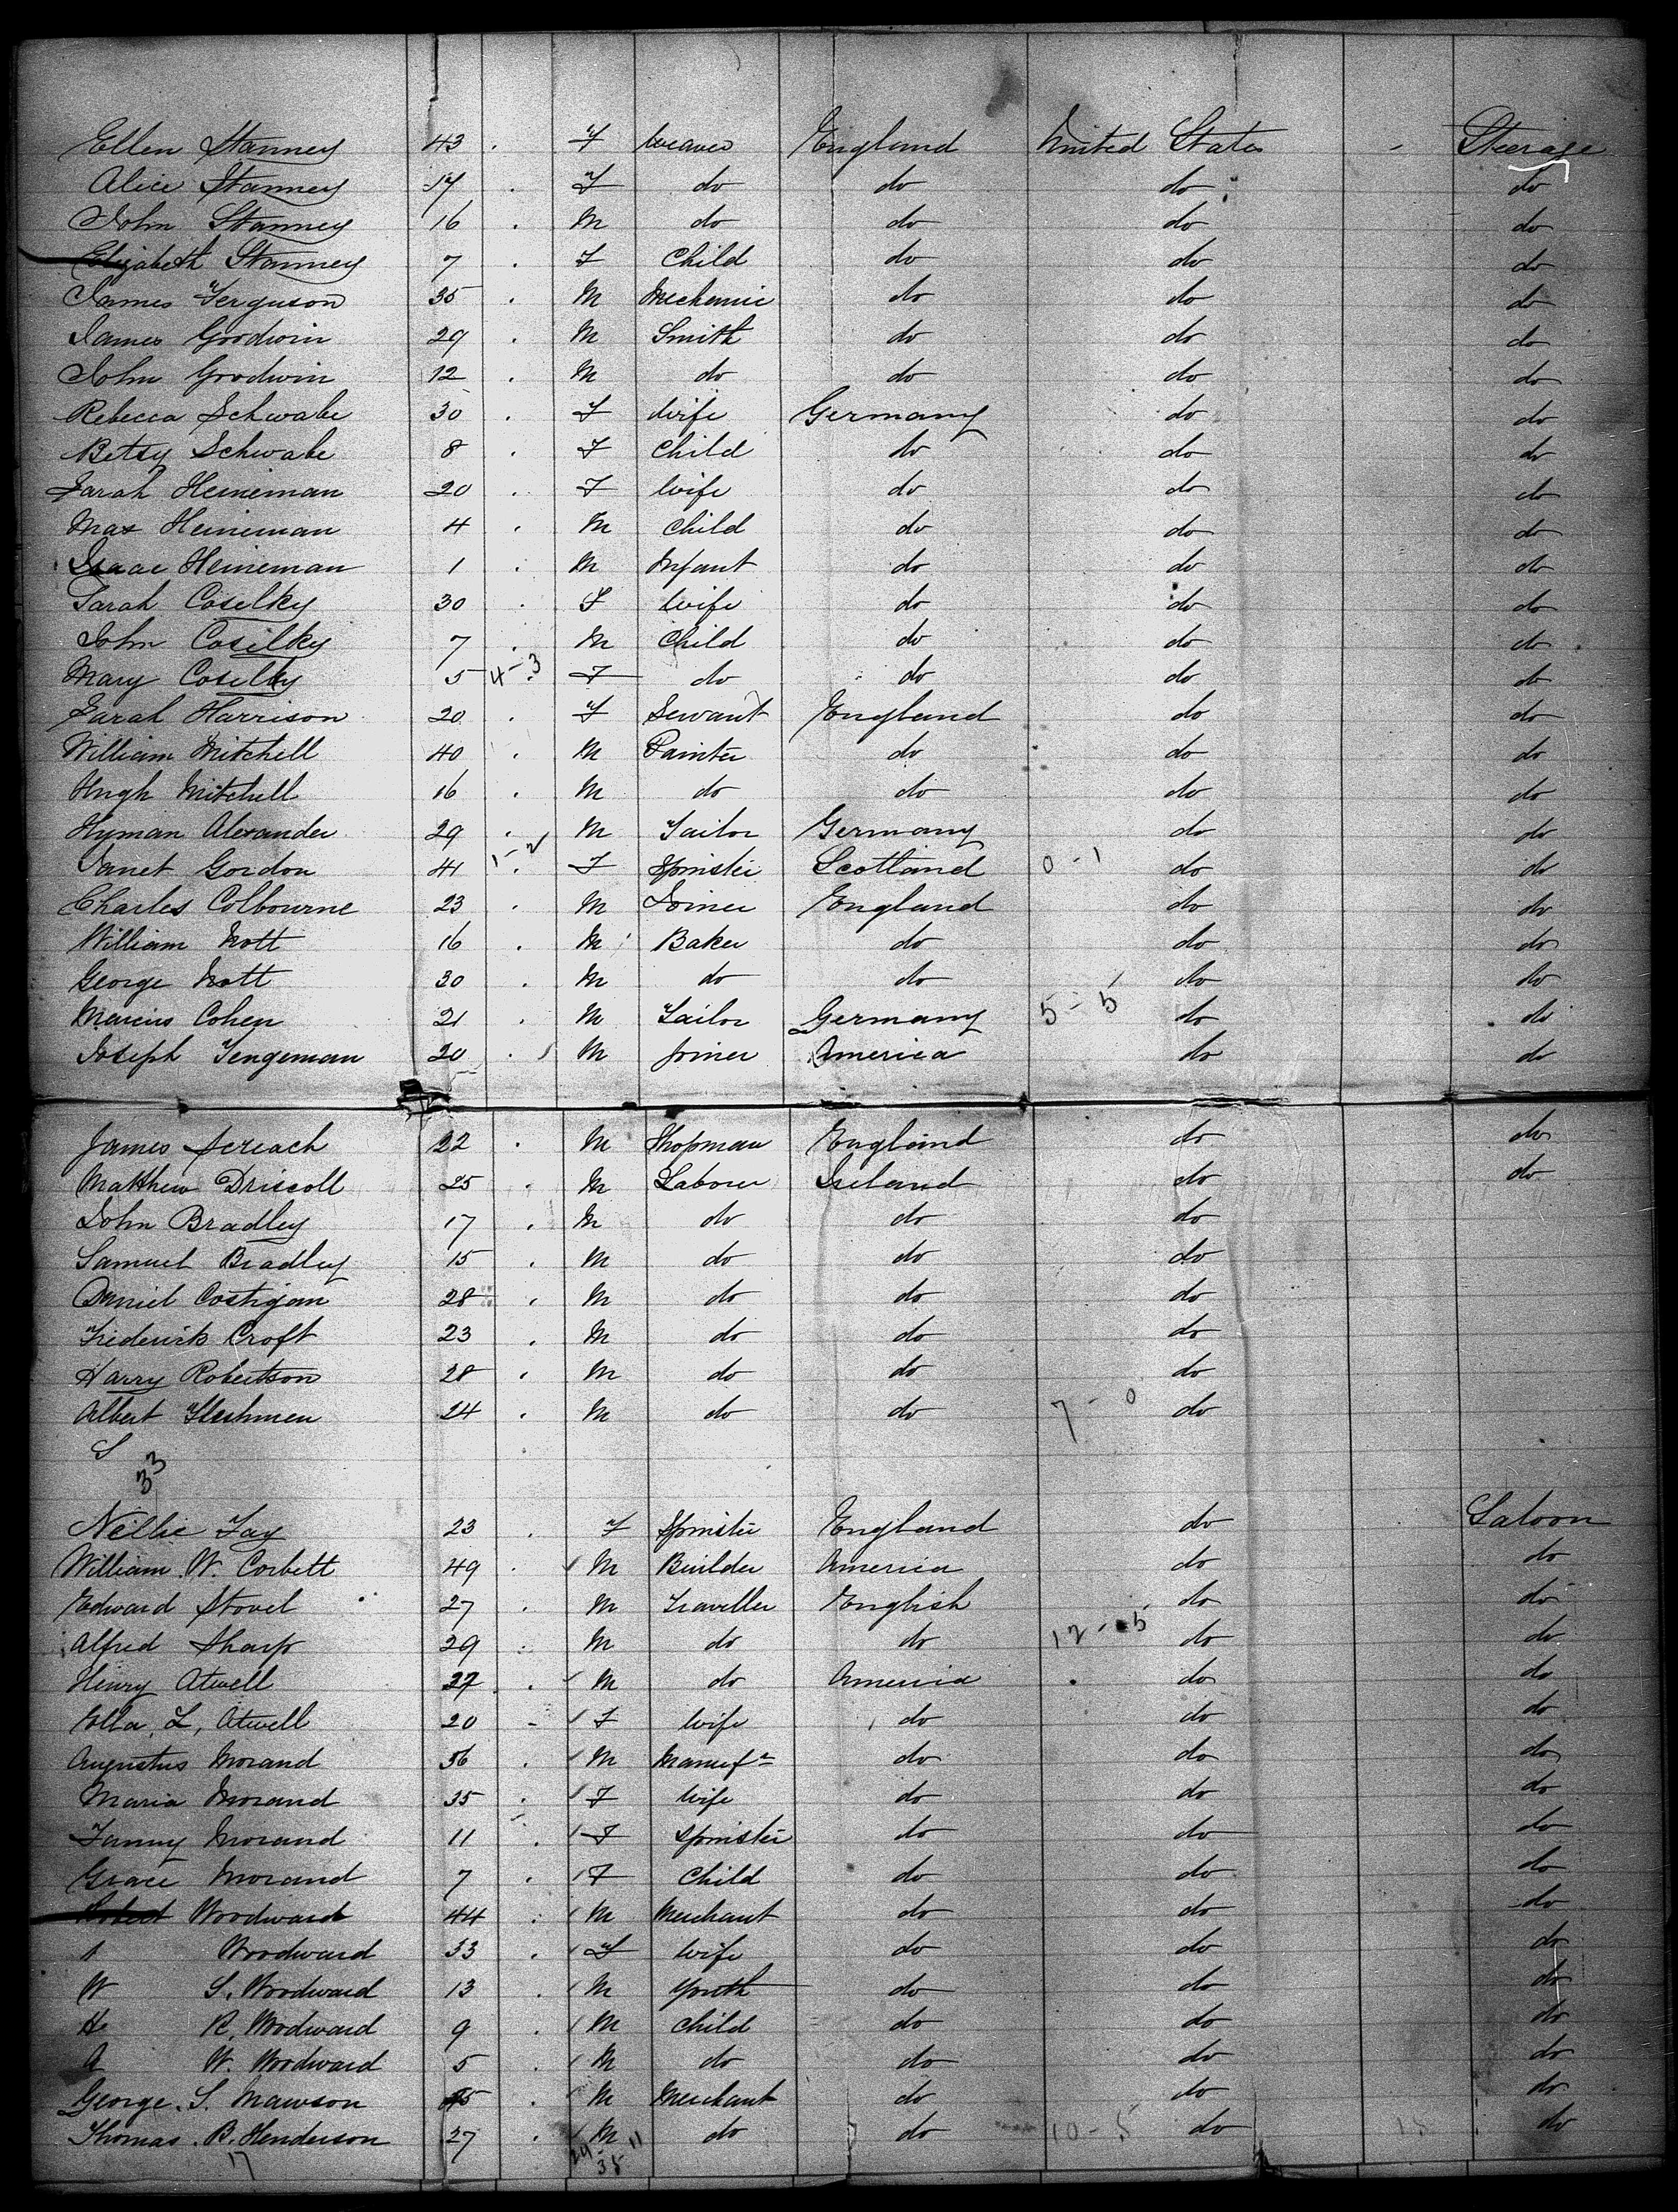 Ellen Stanney 43 . F Weaver England United States - Steerage
Alice Stanney 17 . F do do do do
John Stanney 16 . M do do do do
Elizabeth Stanney 7 . F Child do do do
James Ferguson 35 . M Mechanic do do do
James Goodwin 29 . M Smith do do do
John Goodwin 12 . M do do do do
Rebecca Schwabe 30 . F Wife Germany do do
Betsy Schwabe 8 . F Child do do do
Sarah Heineman 20 . F Wife do do do
Max Heineman 4 . M Child do do do
Isaac Heineman 1 . M Infant do do do
Sarah Coselky 30 . F Wife do do do
John Cosilky 7 . M Child do do do
Mary Coselky 5 4-3 F do do do do
Sarah Harrison 20 . F Servant England do do
William Mitchell 40 . M Painter do do do
Hugh Mitchell 16 . M do do do do
Hyman Alexander 29 . M Tailor Germany do do
Janet Gordon 41 1-2 F Spinster Scotland 0-1 do do
Charles Colbourne 23 . M Joiner England do do
William Nott 16 . M Baker do do do
George Nott 30 . M do do do do
Marcus Cohen 21 . M Tailor Germany 5-5 do do
Joseph Tengeman 20 . M Joiner America do do
James 22 . M Shopman England do do
Matthew Driscoll 25 . M Labourer Ireland do do
John Bradley 17 . M do do do
Samuel Bradley 15 . M do do do
Daniel Costigan 28 . M do do do
Frederick Croft 23 . M do do do
Harry Robertson 28 . M do do do
Albert 24 . M do do 7-0 do
S
33
Nellie Fay 23 . F Spinster England do Saloon
William. W. Corbett 49 . M Builder America do do
Edward Stovel 27 . M Traveller English do do
Alfred Sharp 29 . M do do 12-5 do do
Henry Atwell 27 . M do America do do
Ella. L. Atwell 20 - F Wife do do do
Augustus Morand 56 . M Manufr do do do
Maria Morand 35 . F Wife do do do
Fanny Morand 11 . F Spinster do do do
Grace Morand 7 . F Child do do do
Robert Woodward 44 . M Merchant do do do
Woodward 33 . F Wife do do do
W S. Woodward 13 . M Youth do do do
H R. Woodward 9 . M Child do do do
A W. Woodward 5 . M do do do do
George. S. Mawson M Merchant do do do
Thomas. B. Henderson 37 . M do do 10-5 do 15 do
17 24-11
35